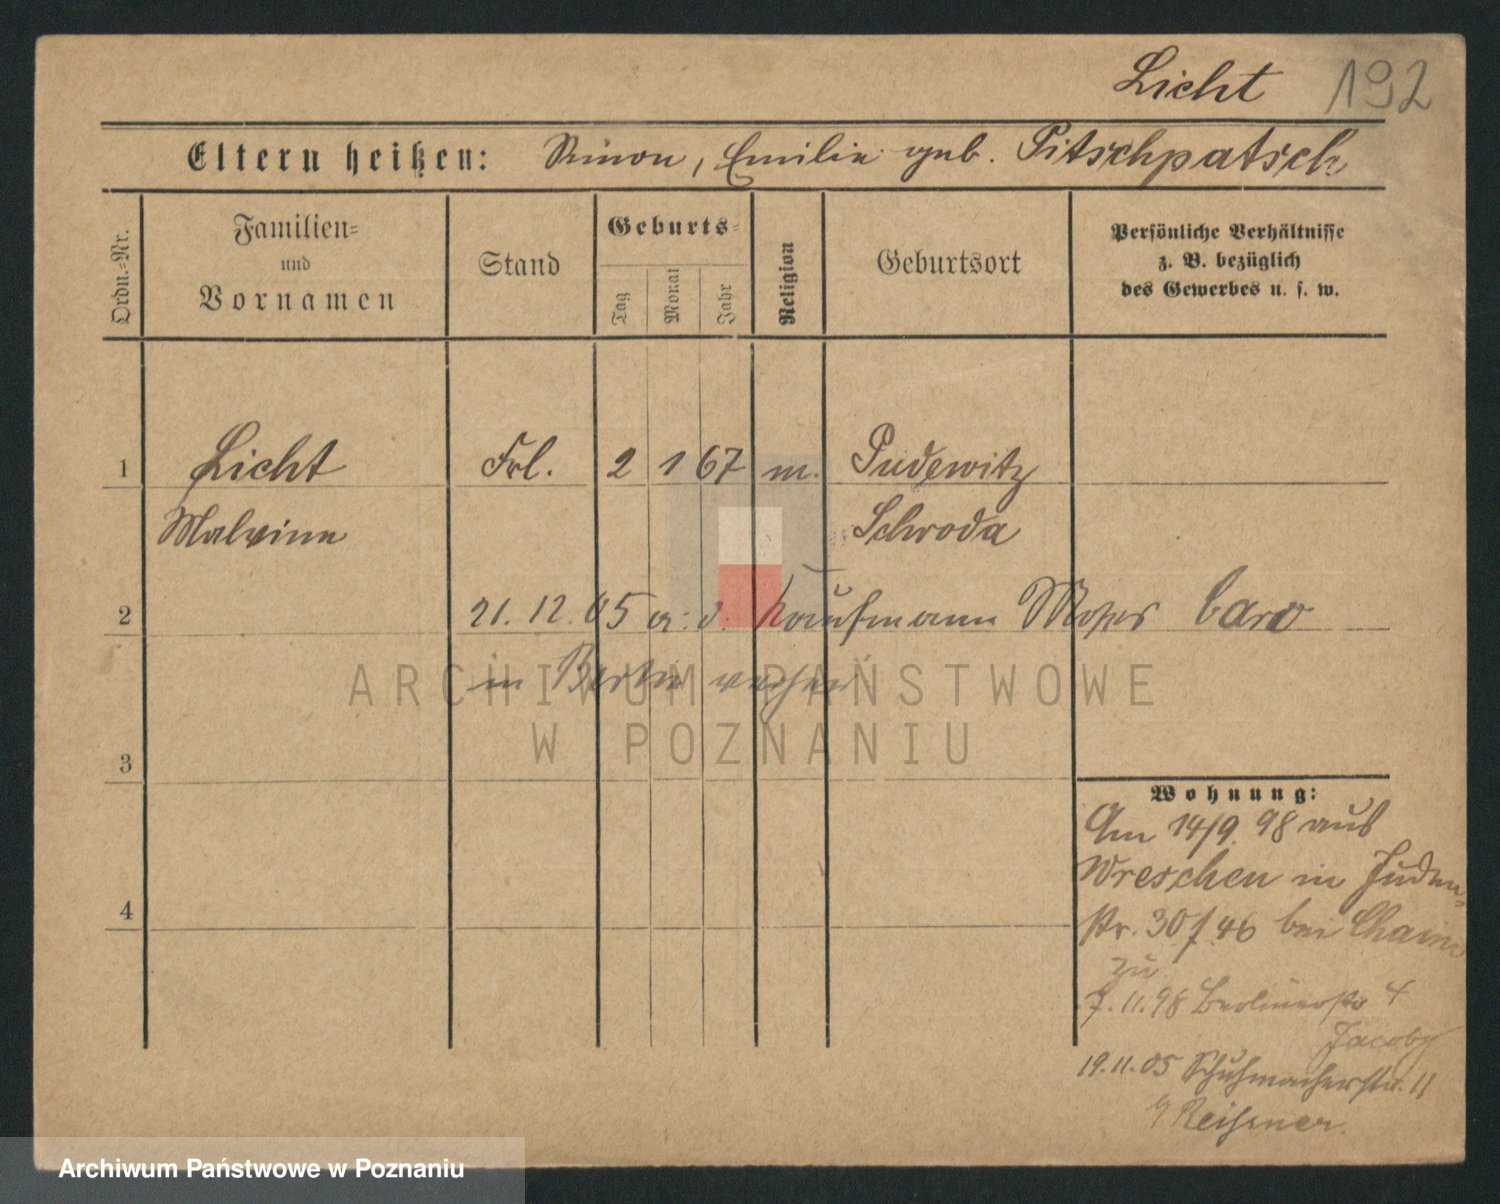 Licht 192
Eltern heißen: Simon, Emilie geb. Pitschpatsch
Ordn.=Nr.
Familien=
und
Vornamen
Stand
Geburts=
Tag
Monat
Jahr
Religion
Geburtsort
Persönliche Verhältnisse
z. B. bezüglich
des Gewerbes u. s. w.
1 Licht Frl. 2 1 67 m. Pudewitz
Malvine Schroda
2 21. 12. 05 a. d. Kaufmann Moses Caro
in Berlin verh
ARCHIWUM PAŃSTWOWE
W POZNANIU
3
4
Wohnung:
Am 14/9 98 aus
Wreschen in Juden-
str. 30/ 46 bei Chaim
zu
7.11.98 Berlinerstr 4
Jacoby
19.11.05 Schuhmacherstr. 11
Reisner.
Archiwum Państwowe w Poznaniu